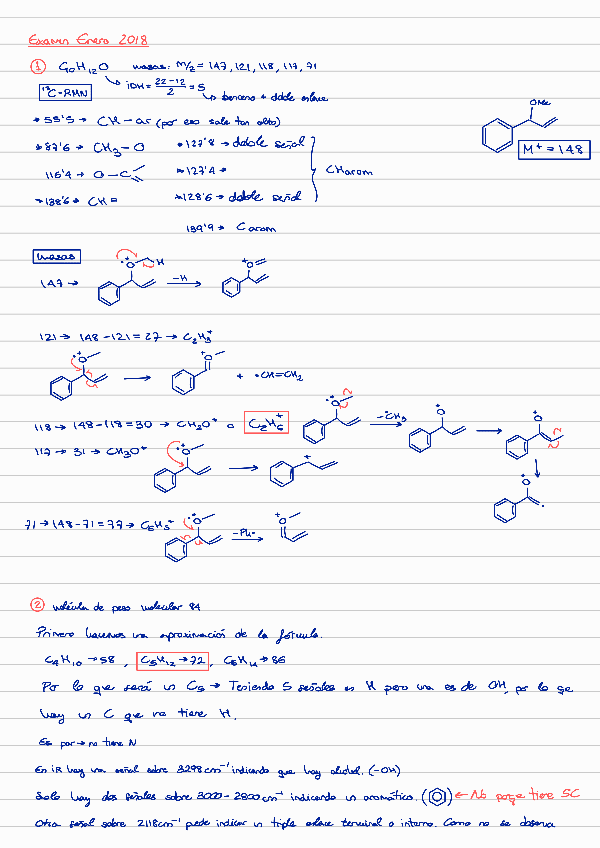 Examen Enero 2018
① C₁₀H₁₂O masas: m/z = 147, 121, 118, 117, 71
iDH = 22-12/2 = 5
↳ benceno + doble enlace
¹³C-RMN
* 55'5 → CH - ar (por eso sale tan alto)
* 87'6 → CH₃ - O
116'4 → O - C
* 138'6 → CH =
* 127'8 → doble señal
* 127'4 →
* 128'6 → doble señal
CHarom
139'9 → C arom
OMe
M⁺ = 148
masas
147 →
-H
121 → 148 - 121 = 27 → C₂H₃⁺
+ •CH=CH₂
118 → 148 - 118 = 30 → CH₂O⁺ o C₂H₆⁺
-CH₃
117 → 31 → CH₃O⁺
71 → 148 - 71 = 77 → C₆H₅⁺
-Ph•
② molécula de peso molecular 84
Primero hacemos una aproximación de la fórmula.
C₄H₁₀ → 58 , C₅H₁₂ → 72 , C₆H₁₄ → 86
Por lo que será un C₅ → Teniendo 5 señales en H pero una es de OH, por lo que
hay un C que no tiene H.
Es par → no tiene N
En iR hay una señal sobre 3298 cm⁻¹ indicando que hay alcohol. (-OH)
Solo hay dos señales sobre 3000 - 2800 cm⁻¹ indicando un aromático. ← No porqe tiene 5C
Otra señal sobre 2118 cm⁻¹ puede indicar un triple enlace terminal o interno. Como no se observa